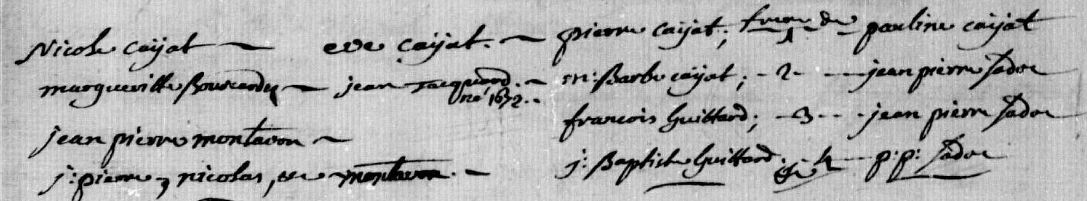 Nicole caijat — eve caijat. — pierre caijat; frere de pauline caijat
margueritte Bourcardey — jean Jacquard. — m: Barbe caijat; - 2 - - - jean pierre Jadoc
né 1672..
jean pierre montavon — francois Guittard; - 3 - - - jean pierre Jadoc
j: pierre, nicolas, eve montavon. — j: Baptiste Guittard. - 4 - - p: p: Jadoc